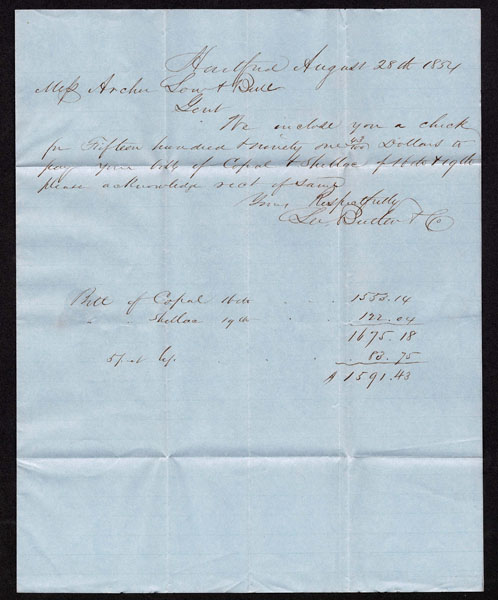 Hartford August 28th 1854
Mess Archer Low & Bull
Gent
We inclose you a check
for Fifteen hundred & ninety one 43/100 Dollars to
pay your bills of Copal & Shellac of 16th & 19th
please acknowledge rect of same
Yours Respectfully
Lee, Butler & Co
Bill of Copal 16th . . 1553.14
" " Shellac 19th . . 122.04
1675.18
5 pr ct . 83.75
$1591.43